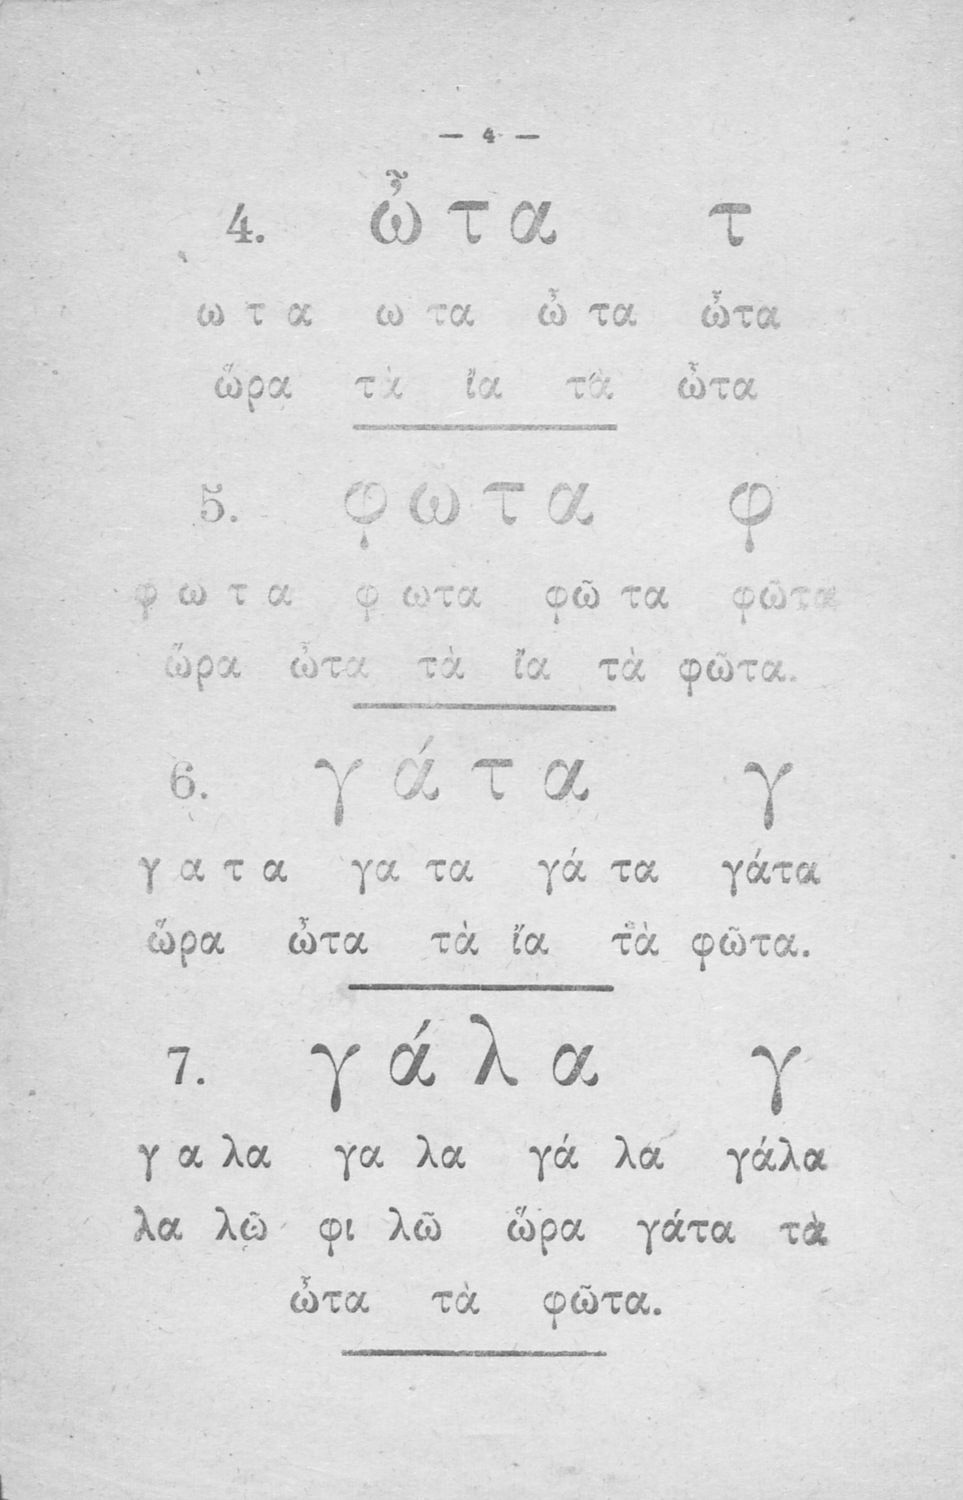 — 4 —
4. ὦ τ α τ
ω τ α ω τα ὦ τα ὦτα
ὥρα τὰ ἴα τὰ ὦτα
5. φ ω τ α φ
φ ω τ α φ ωτα φῶ τα φῶτα
ὥρα ὦτα τὰ ἴα τὰ φῶτα.
6. γ ά τ α γ
γ α τ α γα τα γά τα γάτα
ὥρα ὦτα τὰ ἴα τὰ φῶτα.
7. γ ά λ α γ
γ α λα γα λα γά λα γάλα
λα λῶ φι λῶ ὥρα γάτα τὰ
ὦτα τὰ φῶτα.